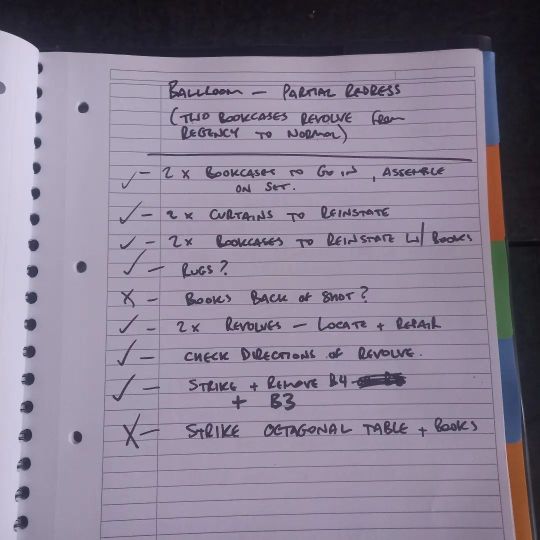 BALLROOM – PARTIAL REDRESS
(TWO BOOKCASES REVOLVE FROM
REGENCY TO NORMAL)
✓ – 2 x BOOKCASES TO GO IN, ASSEMBLE
ON SET.
✓ – 2 x CURTAINS TO REINSTATE
✓ – 2x BOOKCASES TO REINSTATE W/ BOOKS
✓ – RUGS?
X – BOOKS BACK OF SHOT?
✓ – 2 x REVOLVES – LOCATE + REPAIR
✓ – CHECK DIRECTIONS OF REVOLVE.
✓ – STRIKE + REMOVE B4
+ B3
X – STRIKE OCTAGONAL TABLE + BOOKS